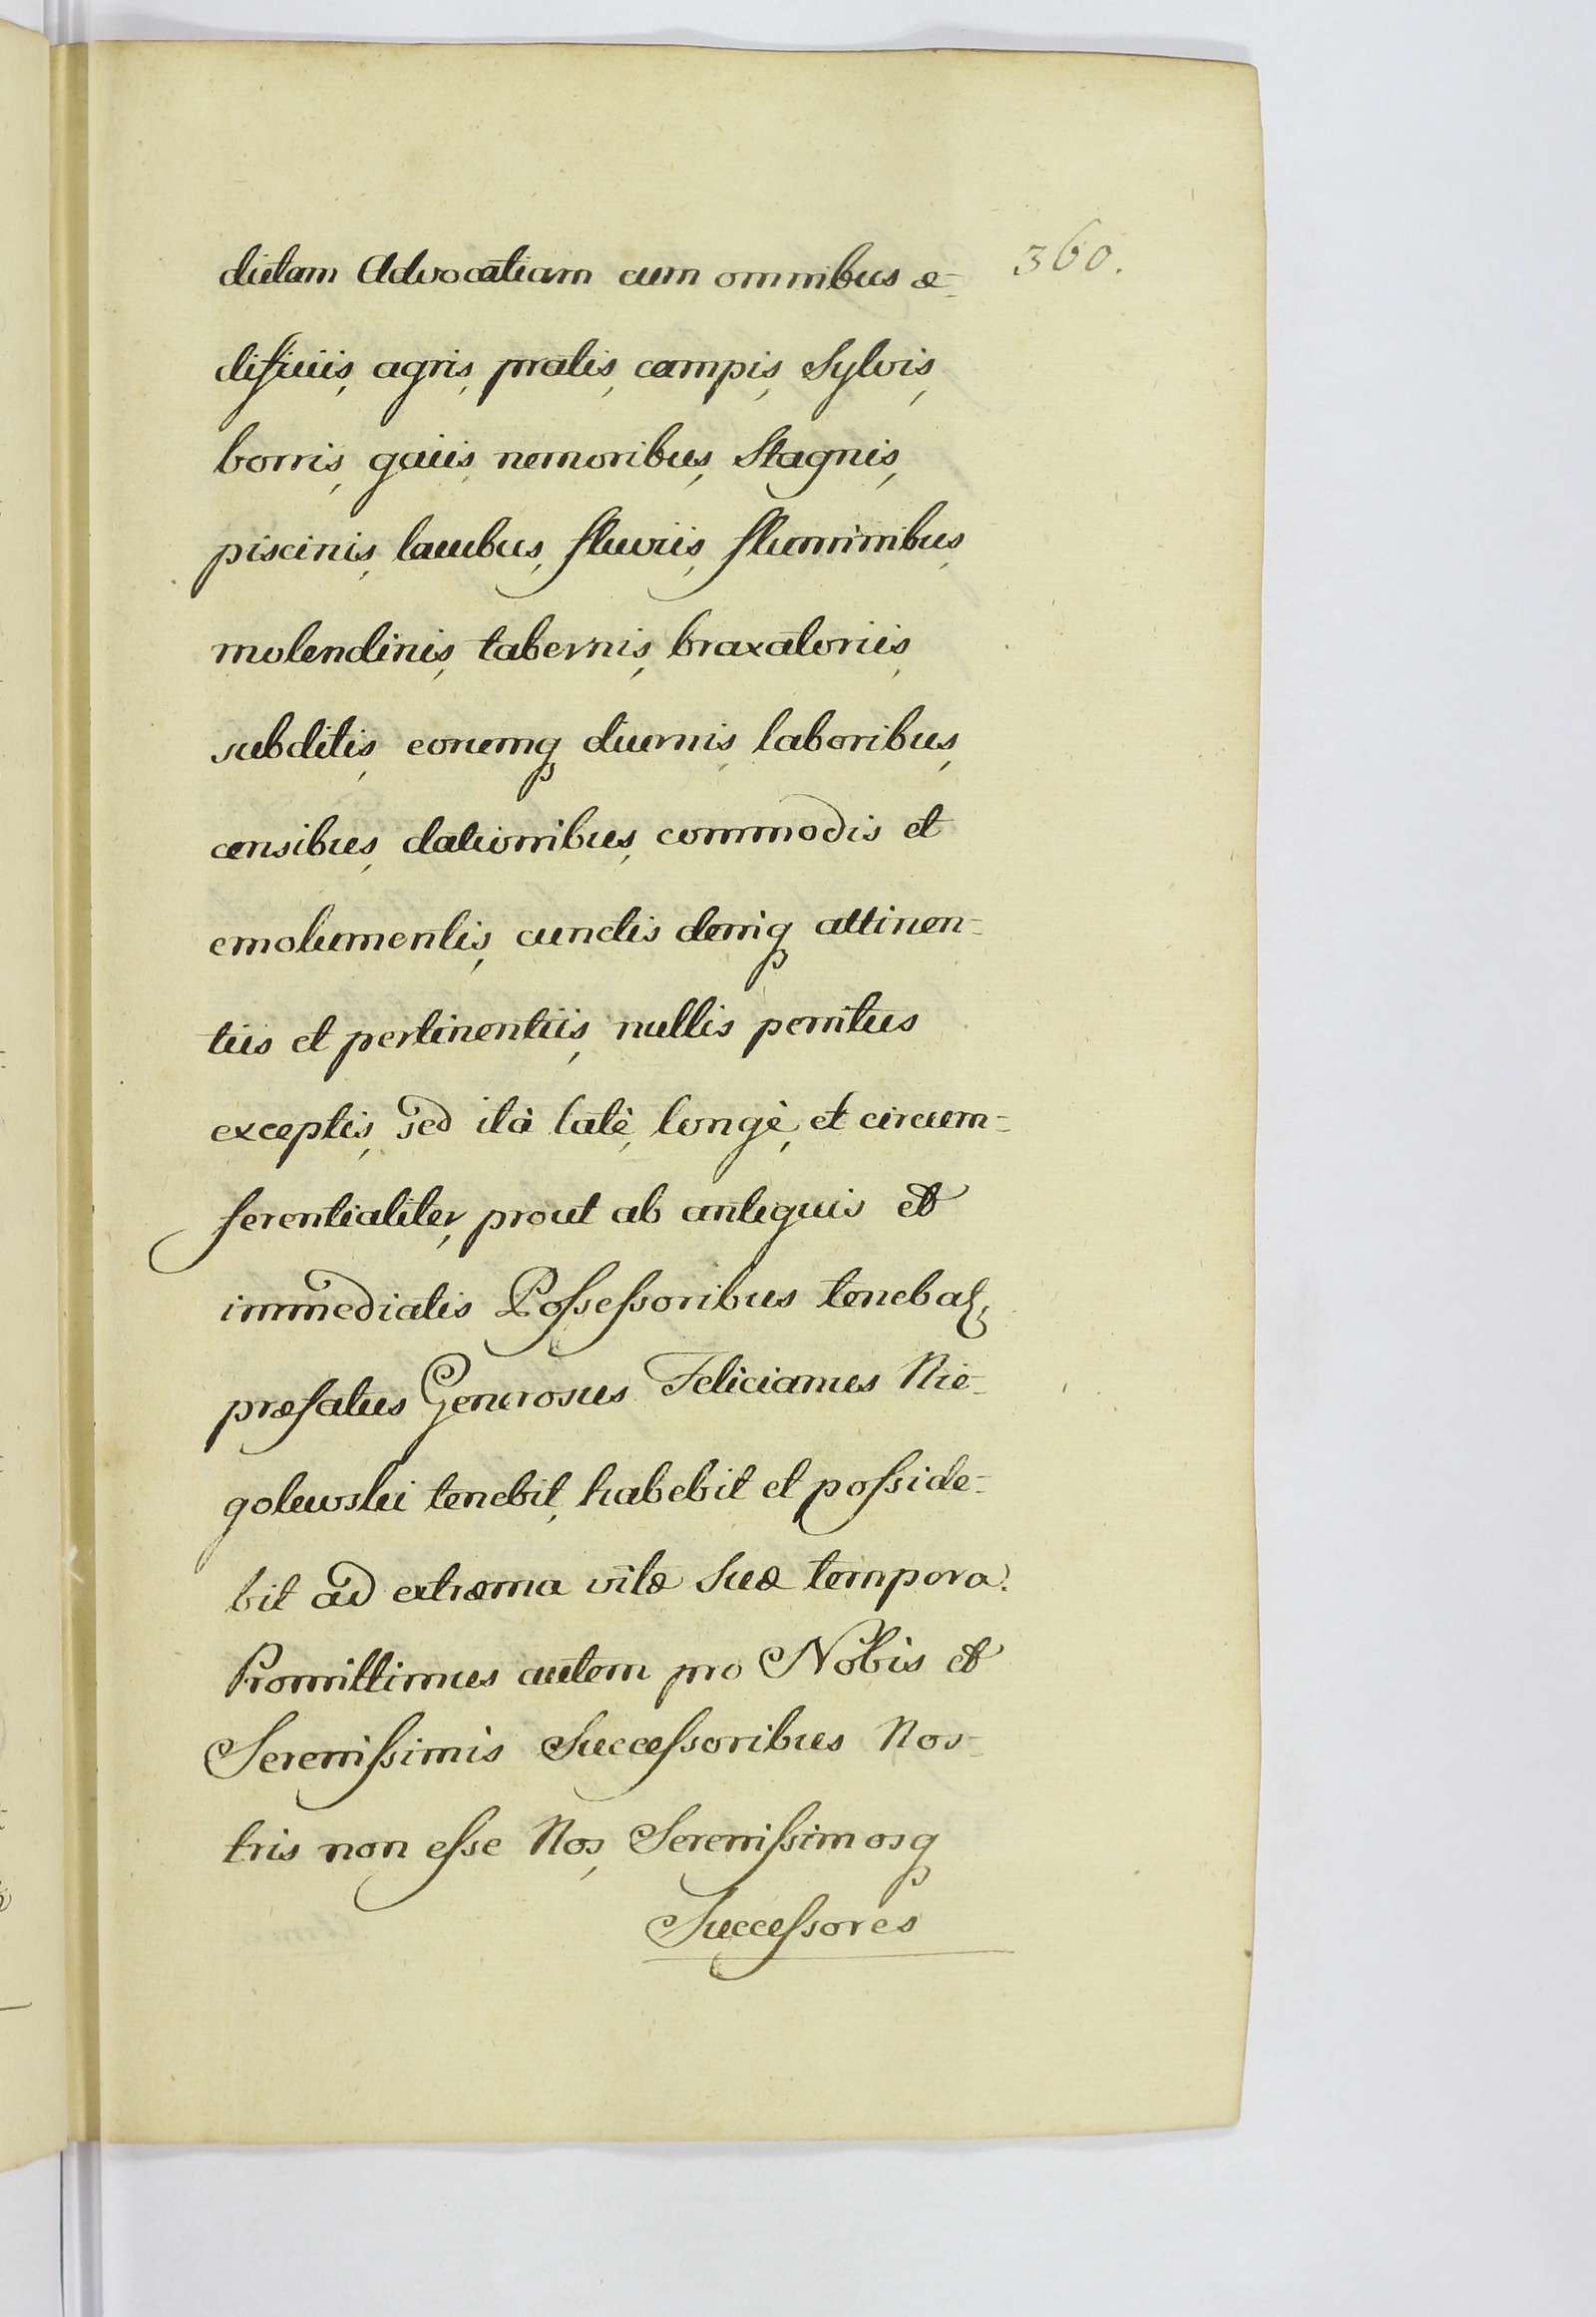 360.
dictam Advocatiam cum omnibus æ-
dificiis, agris, pratis, campis, Sylvis,
borris, gaiis, nemoribus, Stagnis,
piscinis, lacubus, fluviis, fluminibus,
molendinis, tabernis, braxatoriis,
subditis, eorumq diurnis, laboribus,
censibus, dationibus, commodis et
emolumentis, cunctis deniq attinen-
tiis et pertinentiis, nullis penitus
exceptis, sed ità latè, longè, et circum-
ferentialiter, prout ab antiquis et
immediatis Possessoribus teneba,
præfatus Generosus Felicianus Nie-
golewski tenebit, habebit et posside-
bit ad extræma vitæ suæ tempora.
Promittimus autem pro Nobis et
Serenissimis Successoribus Nos-
tris non esse Nos, Serenissimosq
Successores